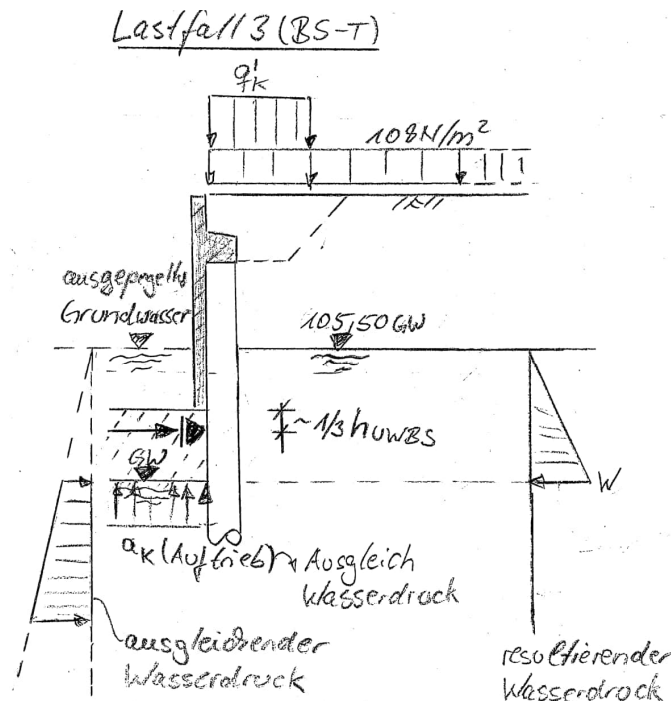 Lastfall 3 (BS-T)
q'K
108N/m²
ausgepegeltes
Grundwasser
105,50 GW
~ 1/3 hUWBS
GW
W
aK (Auftrieb) Ausgleich
Wasserdruck
ausgleichender
Wasserdruck
resultierender
Wasserdruck